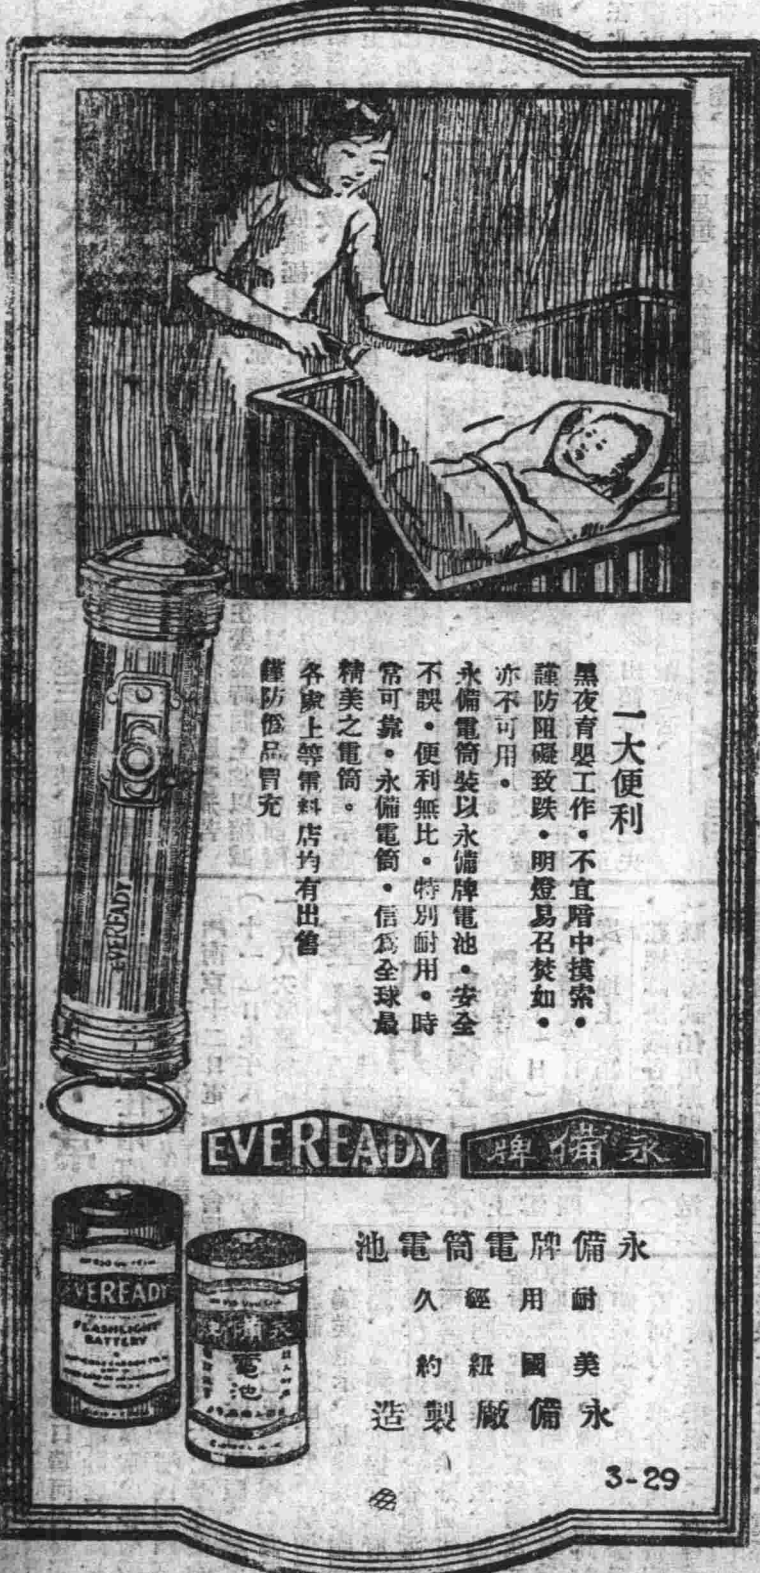 一大便利
黑夜育嬰工作。不宜暗中摸索。
謹防阻礙致跌。明燈易召焚如。
亦不可用。
永備電筒裝以永備牌電池。安全
不誤。便利無比。特別耐用。時
常可靠。永備電筒。信爲全球最
精美之電筒。
各處上等電料店均有出售
謹防僞品冒充
EVEREADY
永備牌
EVEREADY
永備牌電筒電池
耐用經久
美國紐約
永備廠製造
EVEREADY
FLASHLIGHT
BATTERY
永備牌
電池
3-29